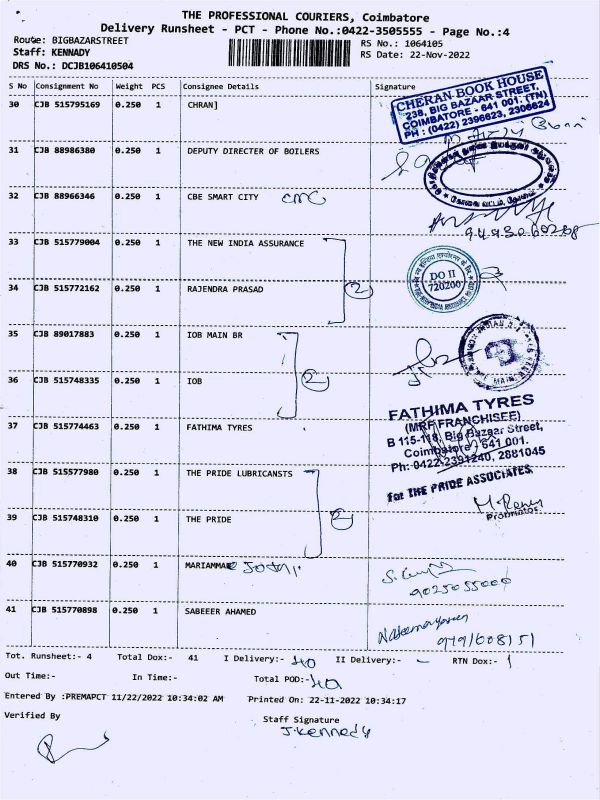 THE PROFESSIONAL COURIERS, Coimbatore
Delivery Runsheet - PCT - Phone No.:0422-3505555 - Page No.:4
Route: BIGBAZARSTREET
RS No.: 1064105
Staff: KENNADY
RS Date: 22-Nov-2022
DRS No.: DCJB106410504
S No Consignment No Weight PCS Consignee Details Signature
30 CJB 515795169 0.250 1 CHRAN]
CHERAN BOOK HOUSE
238, BIG BAZAAR STREET,
COIMBATORE - 641 001. (TN)
PH : (0422) 2396623, 2306624
31 CJB 88986380 0.250 1 DEPUTY DIRECTER OF BOILERS
32 CJB 88966346 0.250 1 CBE SMART CITY CMC
33 CJB 515779004 0.250 1 THE NEW INDIA ASSURANCE
DO II
720200
34 CJB 515772162 0.250 1 RAJENDRA PRASAD 2
35 CJB 89017883 0.250 1 IOB MAIN BR
36 CJB 515748335 0.250 1 IOB 2
37 CJB 515774463 0.250 1 FATHIMA TYRES
FATHIMA TYRES
(MRF FRANCHISEE)
B 115-118, Big Bazaar Street,
Coimbatore - 641 001.
Ph: 0422-2391240, 2881045
38 CJB 515577980 0.250 1 THE PRIDE LUBRICANSTS
for THE PRIDE ASSOCIATES,
Proprietor
39 CJB 515748310 0.250 1 THE PRIDE 2
40 CJB 515770932 0.250 1 MARIAMMAE
9025055000
41 CJB 515770898 0.250 1 SABEEER AHAMED
9791608151
Tot. Runsheet:- 4 Total Dox:- 41 I Delivery:- 40 II Delivery:- - RTN Dox:- 1
Out Time:- In Time:- Total POD:- 40
Entered By :PREMAPCT 11/22/2022 10:34:02 AM Printed On: 22-11-2022 10:34:17
Verified By
Staff Signature
J.Kennedy